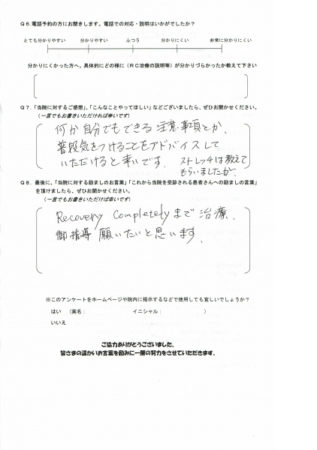 Q6.電話予約の方にお聞きします。電話での対応・説明はいかがでしたか？
とても分かりやすい 分かりやすい ふつう 分かりにくい 非常に分かりにくい
分かりにくかった方へ、具体的にどの様に（RC治療の説明等）が分かりづらかったか教えて下さい
Q7.「当院に対するご感想」、「こんなことやってほしい」などございましたら、ぜひお聞かせください。
（一言でもお書きいただければ幸いです）
何か自分でもできる注意事項とか、
普段気をつけることをアドバイスして
いただけると幸いです。
ストレッチは教えて
もらいましたが、
Q8.最後に、「当院に対する励ましのお言葉」「これから当院を受診される患者さんへの励ましの言葉」
を頂けましたら、ぜひお聞かせください。
（一言でもお書きいただければ幸いです）
Recovery Completelyまで治療、
御指導願いたいと思います。
※このアンケートをホームページや院内に掲示するなどで使用しても宜しいでしょうか？
はい （実名： イニシャル： ）
いいえ
ご協力ありがとうございました。
皆さまの温かいお言葉を励みに一層の努力をさせていただきます。